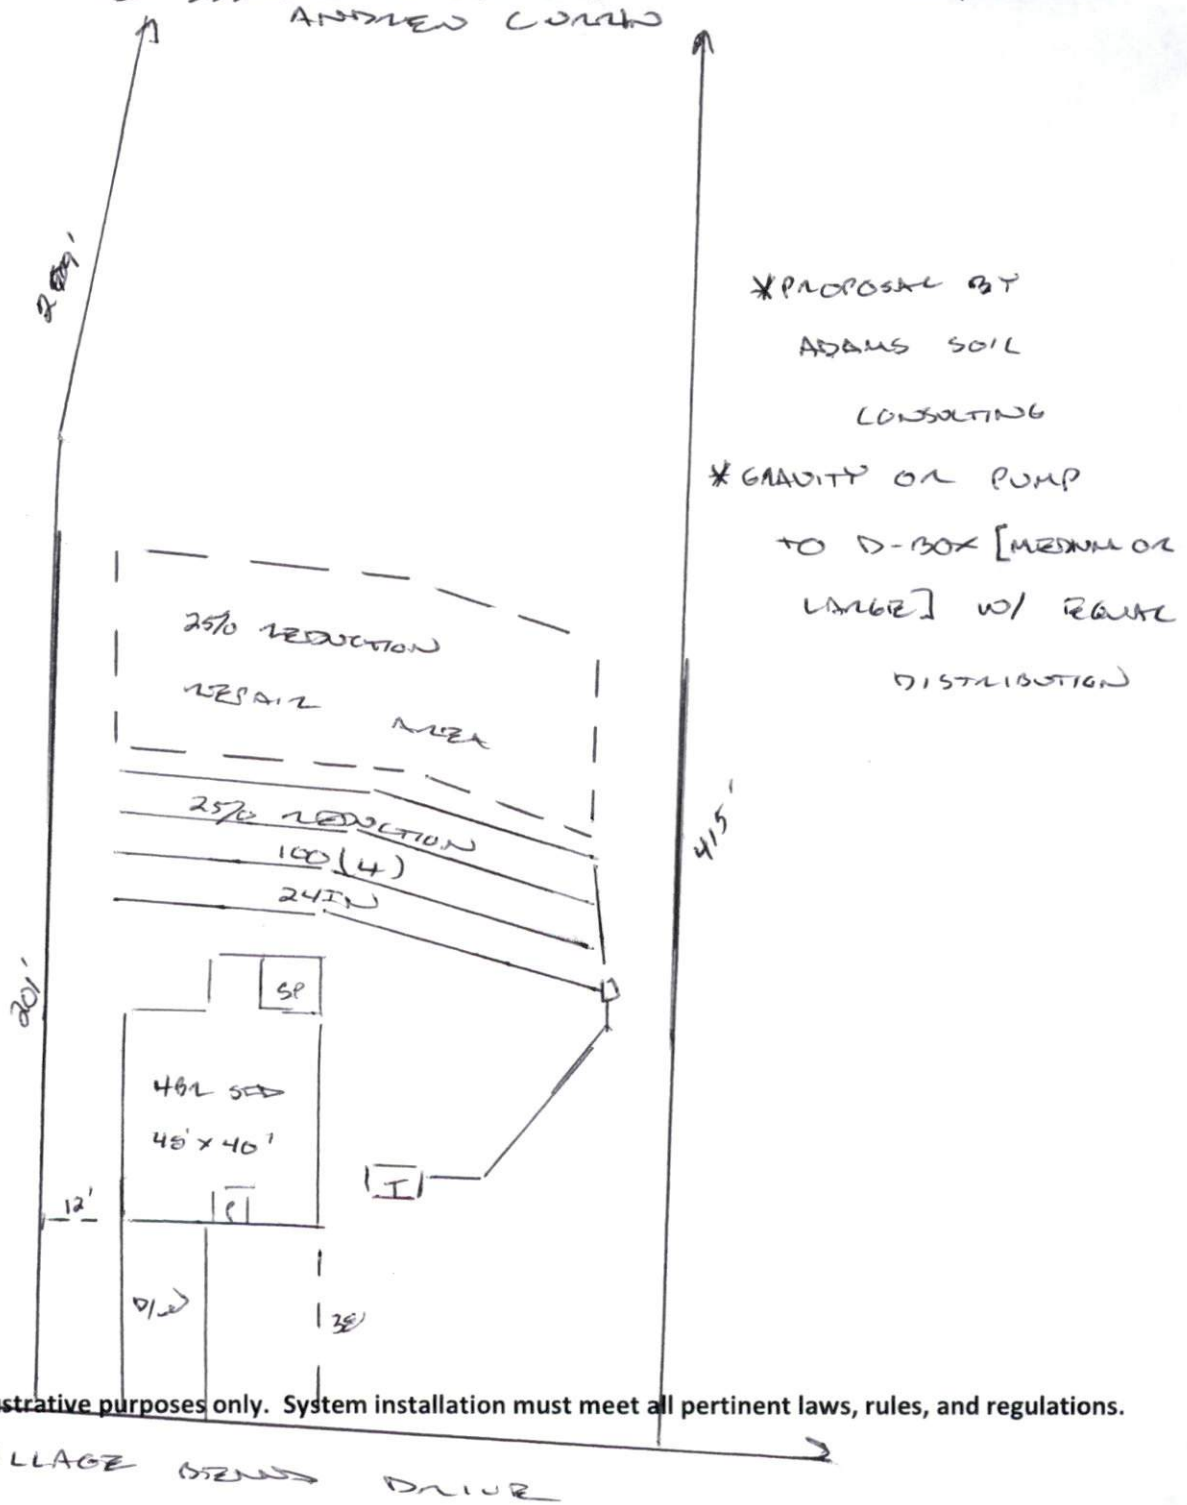 ANDREW CURRIN
*PROPOSAL BY
ADAMS SOIL
CONSULTING
*GRAVITY OR PUMP
TO D-BOX [MEDIUM OR
LARGE] W/ EQUAL
DISTRIBUTION
25% REDUCTION
REPAIR AREA
25% REDUCTION
100(4)
24IN
415'
201'
SP
4BR SFD
45' x 40'
T
12'
P
D/W
strative purposes only. System installation must meet all pertinent laws, rules, and regulations.
LLAGE BEND DRIVE